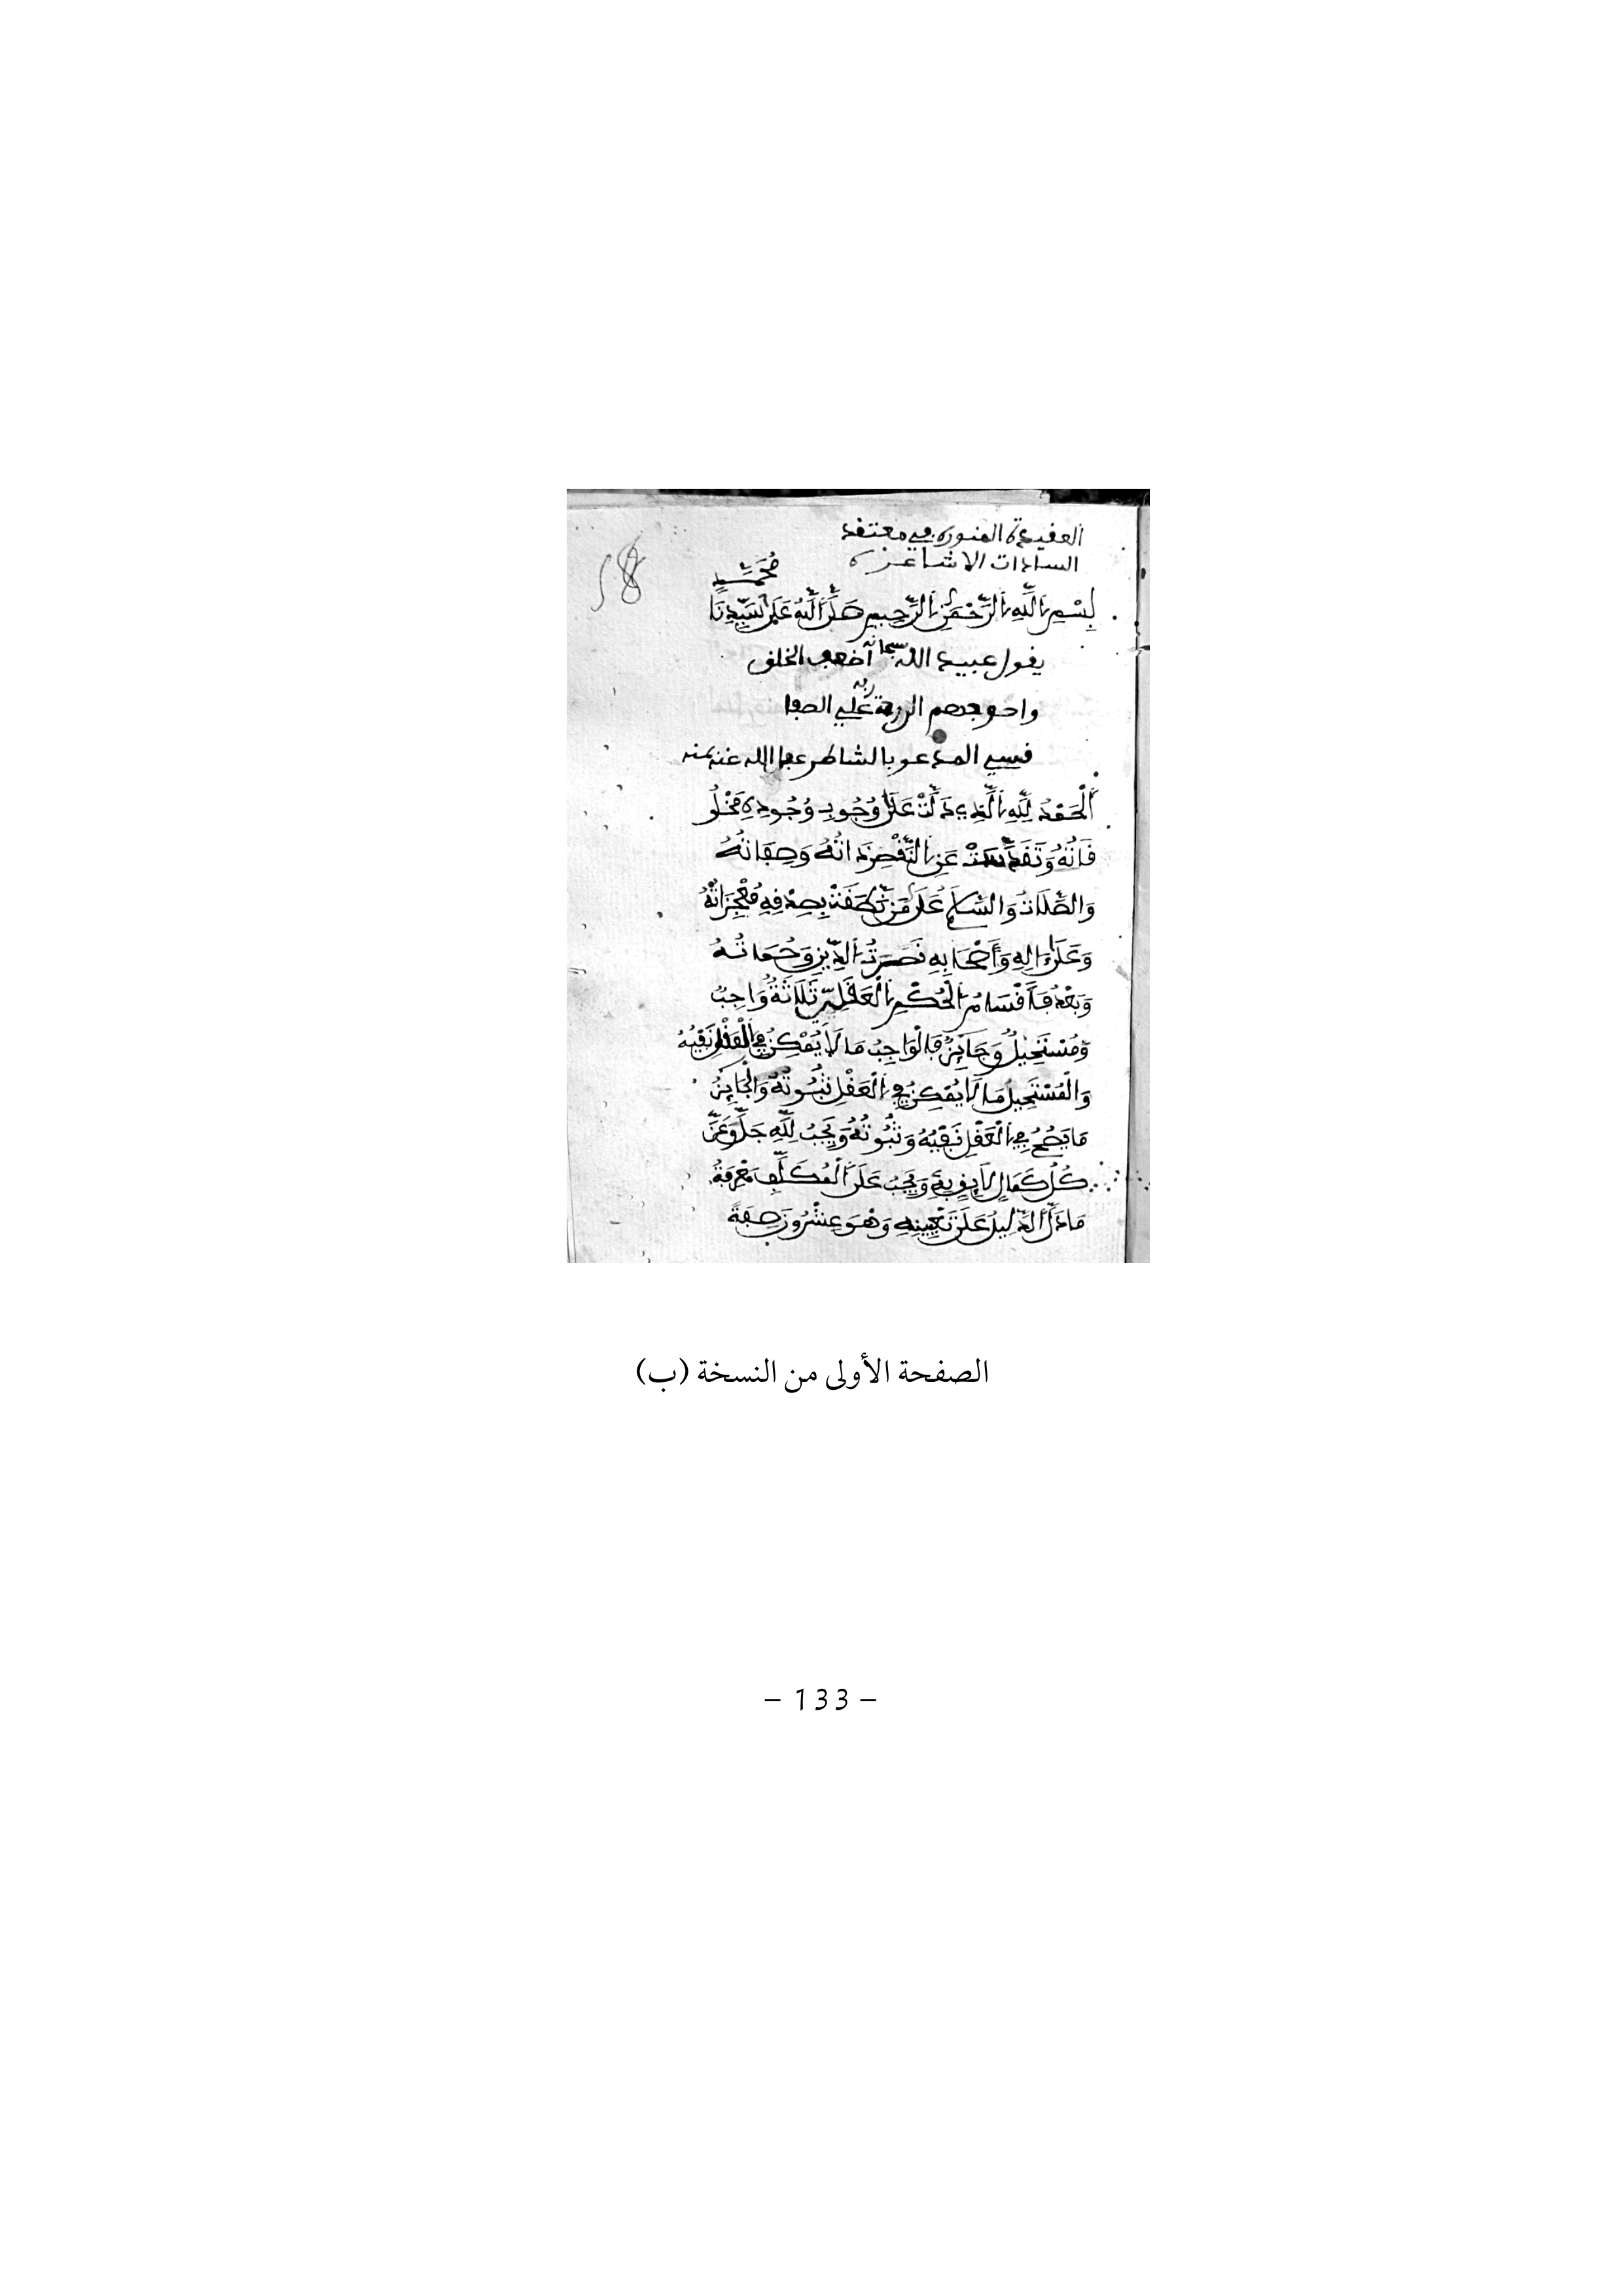 العقيدة المنورة في معتقد
السادات الاشاعرة
محمد
بِسْمِ اللَّهِ الرَّحْمَٰنِ الرَّحِيمِ صَلَّى اللَّهُ عَلَى سَيِّدِنَا
يقول عبيد الله سبحانه أضعف الخلق
واحوجهم الى ربه علي الصفا
قسي المدعو بالشاطر عفا الله عنه بمنه
اَلْحَمْدُ لِلَّهِ الَّذِي دَلَّتْ عَلَى وُجُوبِ وُجُودِهِ مَخْلُو
قَاتُهُ وَتَقَدَّسَتْ عَنِ النَّقْصِ ذَاتُهُ وَصِفَاتُهُ
وَالصَّلَاتُ وَالسَّلَامُ عَلَى مَنْ نَطَقَتْ بِصِدْقِهِ مُعْجِزَاتُهُ
وَعَلَى ءَالِهِ وَأَصْحَابِهِ نَصَرَتُ الدِّينِ وَحُمَاتُهُ
وَبَعْدُ فَأَقْسَامُ الْحُكْمِ الْعَقْلِيِّ ثَلَاثَةٌ وَاجِبٌ
وَمُسْتَحِيلٌ وَجَائِزٌ فَالْوَاجِبُ مَا لَا يُمْكِنُ فِي الْعَقْلِ نَفْيُهُ
وَالْمُسْتَحِيلُ مَا لَا يُمْكِنُ فِي الْعَقْلِ ثُبُوتُهُ وَالْجَائِزُ
مَا يَصِحُّ فِي الْعَقْلِ نَفْيُهُ وَثُبُوتُهُ وَيَجِبُ لِلَّهِ جَلَّ وَعَزَّ
كُلُّ كَمَالٍ لَائِقٍ بِهِ وَيَجِبُ عَلَى الْمُكَلَّفِ مَعْرِفَةُ
مَا دَلَّ الدَّلِيلُ عَلَى تَعْيِينِهِ وَهْوَ عِشْرُونَ صِفَةً
الصفحة الأولى من النسخة (ب)
– 133 –